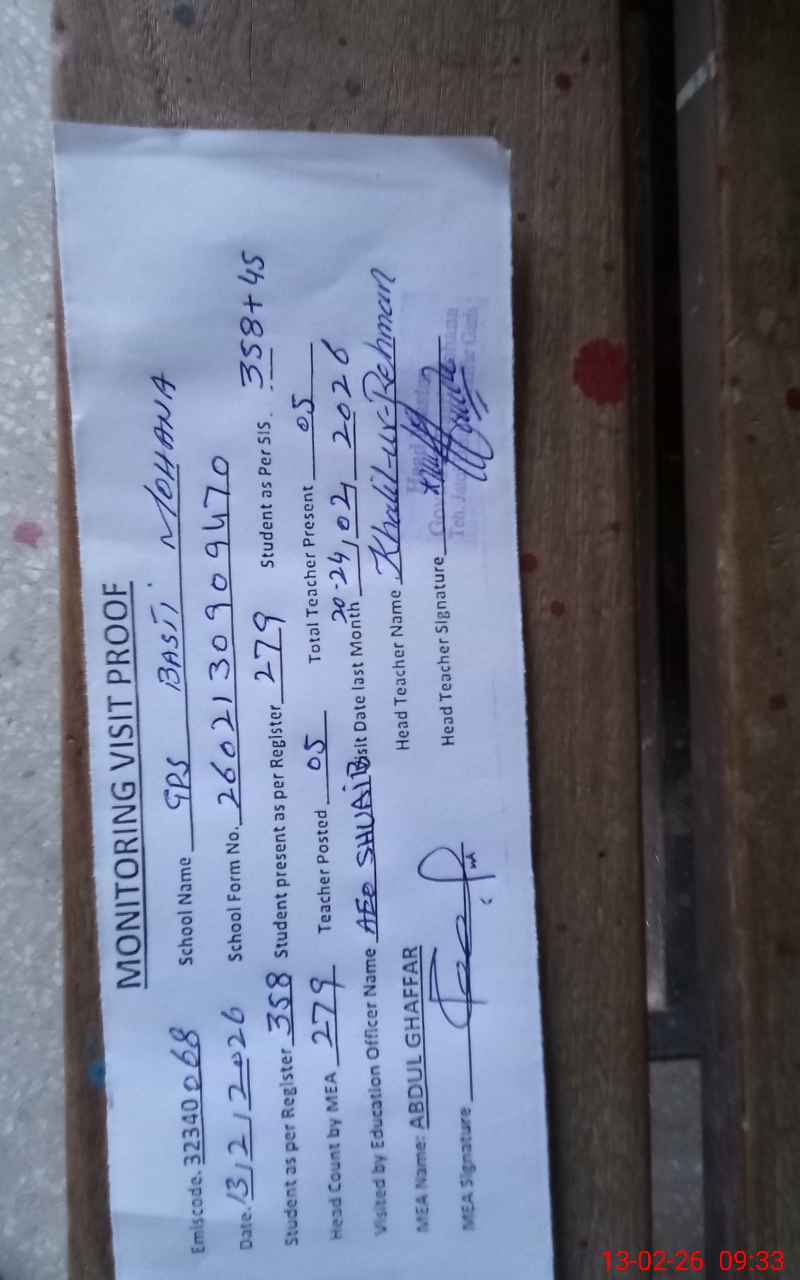 MONITORING VISIT PROOF
Emiscode. 32340068 School Name GPS BASTI MOHANA
Date. 13/2/2026 School Form No. 260213090909470
Student as per Register 358 Student present as per Register 279 Student as Per SIS. 358+45
Head Count by MEA 279 Teacher Posted 05 Total Teacher Present 05
Visited by Education Officer Name AEO SHUAIB Visit Date last Month 20-24/02/2026
MEA Name: ABDUL GHAFFAR Head Teacher Name Khalil-ur-Rehman
MEA Signature Head Teacher Signature
13-02-26 09:33